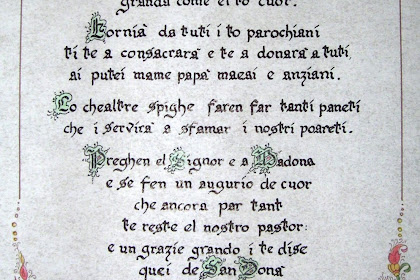 granda come el to cuor.
Fornià da tuti i to parochiani
ti te a consacrarà e te a donarà a tuti,
ai putei mame papà maesai e anziani.
Co chealtre spighe faren far tanti paneti
che i servirà a sfamar i nostri poareti.
Preghen el Signor e a Madona
e se fen un augurio de cuor
che ancora par tant
te reste el nostro pastor:
e un grazie grando i te dise
quei de San Donà